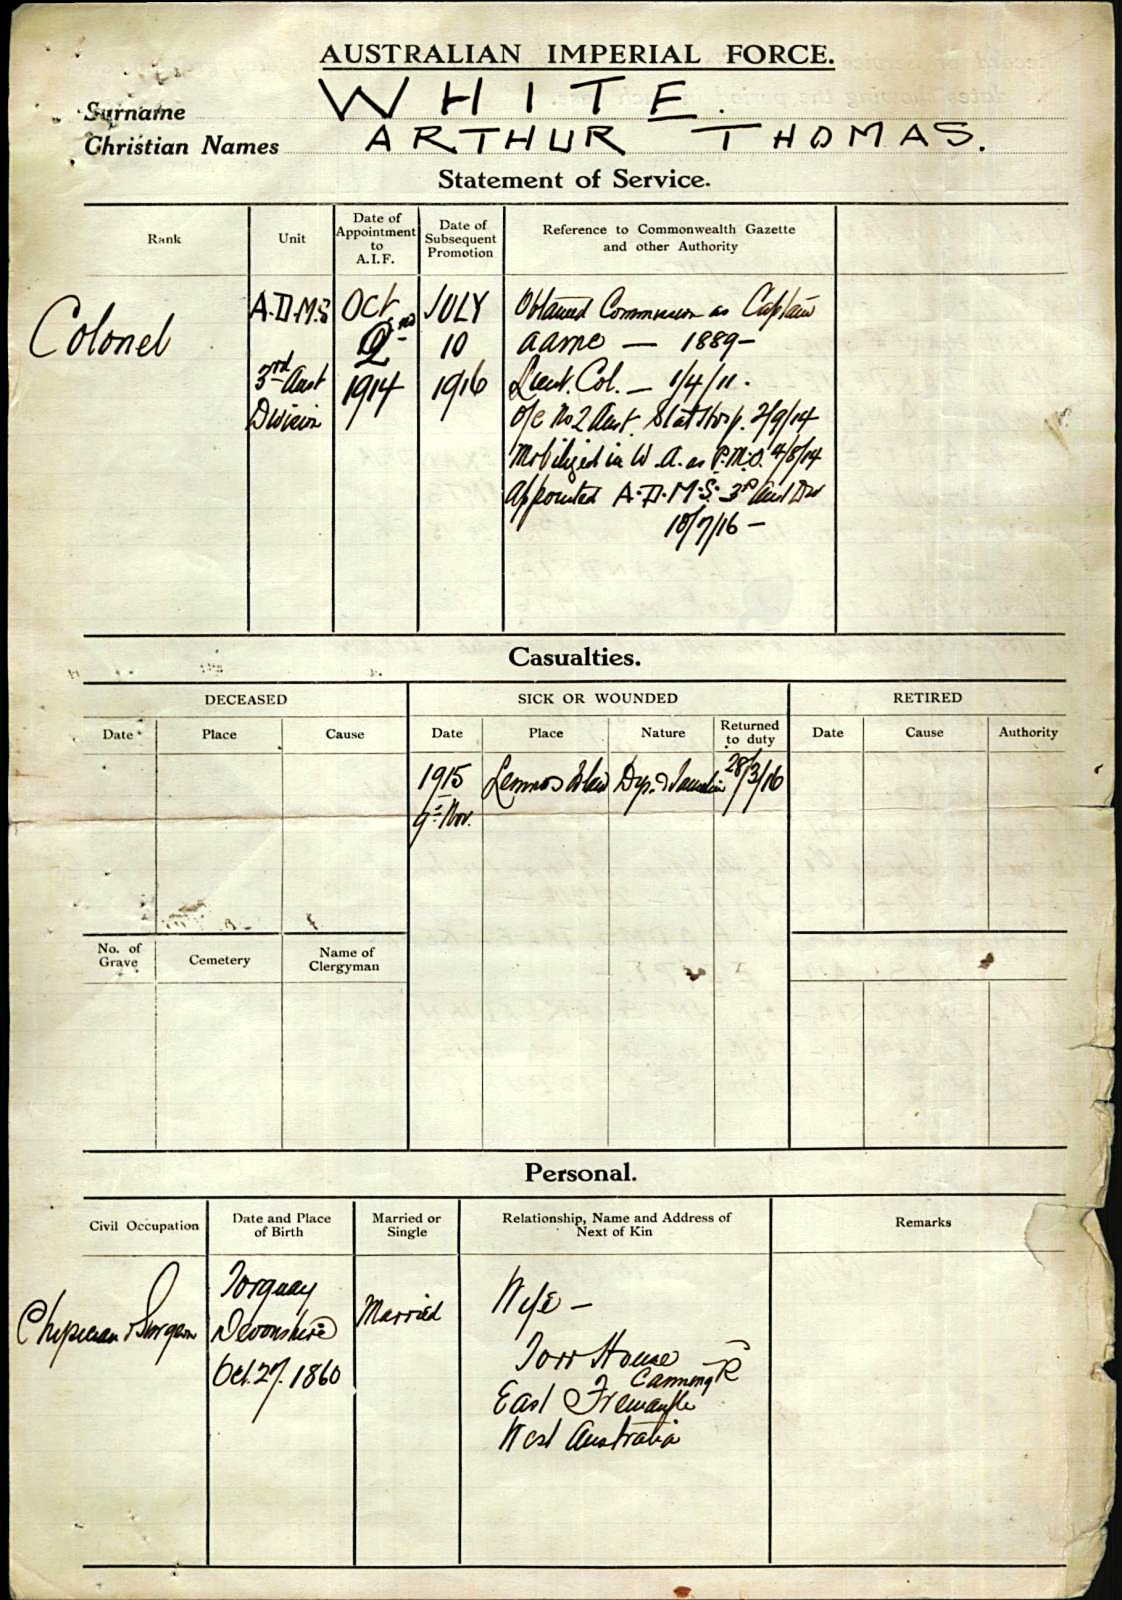 AUSTRALIAN IMPERIAL FORCE.
Surname WHITE.
Christian Names ARTHUR THOMAS.
Statement of Service.
Rank
Unit
Date of
Appointment
to
A.I.F.
Date of
Subsequent
Promotion
Reference to Commonwealth Gazette
and other Authority
Colonel
A.D.M.S
3rd Aust
Division
Oct
2nd
1914
JULY
10
1916
Obtained Commission as Captain
aamc — 1889 —
Lieut. Col. — 1/4/11.
o/c No 2 Aust. Stat Hosp. 2/9/14
Mobilized in W.A. as P.M.O. 4/8/14
Appointed A.D.M.S. 3rd Aust Div
10/7/16 —
Casualties.
DECEASED
SICK OR WOUNDED
RETIRED
Date
Place
Cause
Date
Place
Nature
Returned
to duty
Date
Cause
Authority
1915
9th Nov.
Lemnos
Dys. &
28/3/16
No. of
Grave
Cemetery
Name of
Clergyman
Personal.
Civil Occupation
Date and Place
of Birth
Married or
Single
Relationship, Name and Address of
Next of Kin
Remarks
Physician & Surgeon
Torquay
Devonshire
Oct. 27. 1860
Married
Wife —
Torr House
Canning R
East Fremantle
West Australia